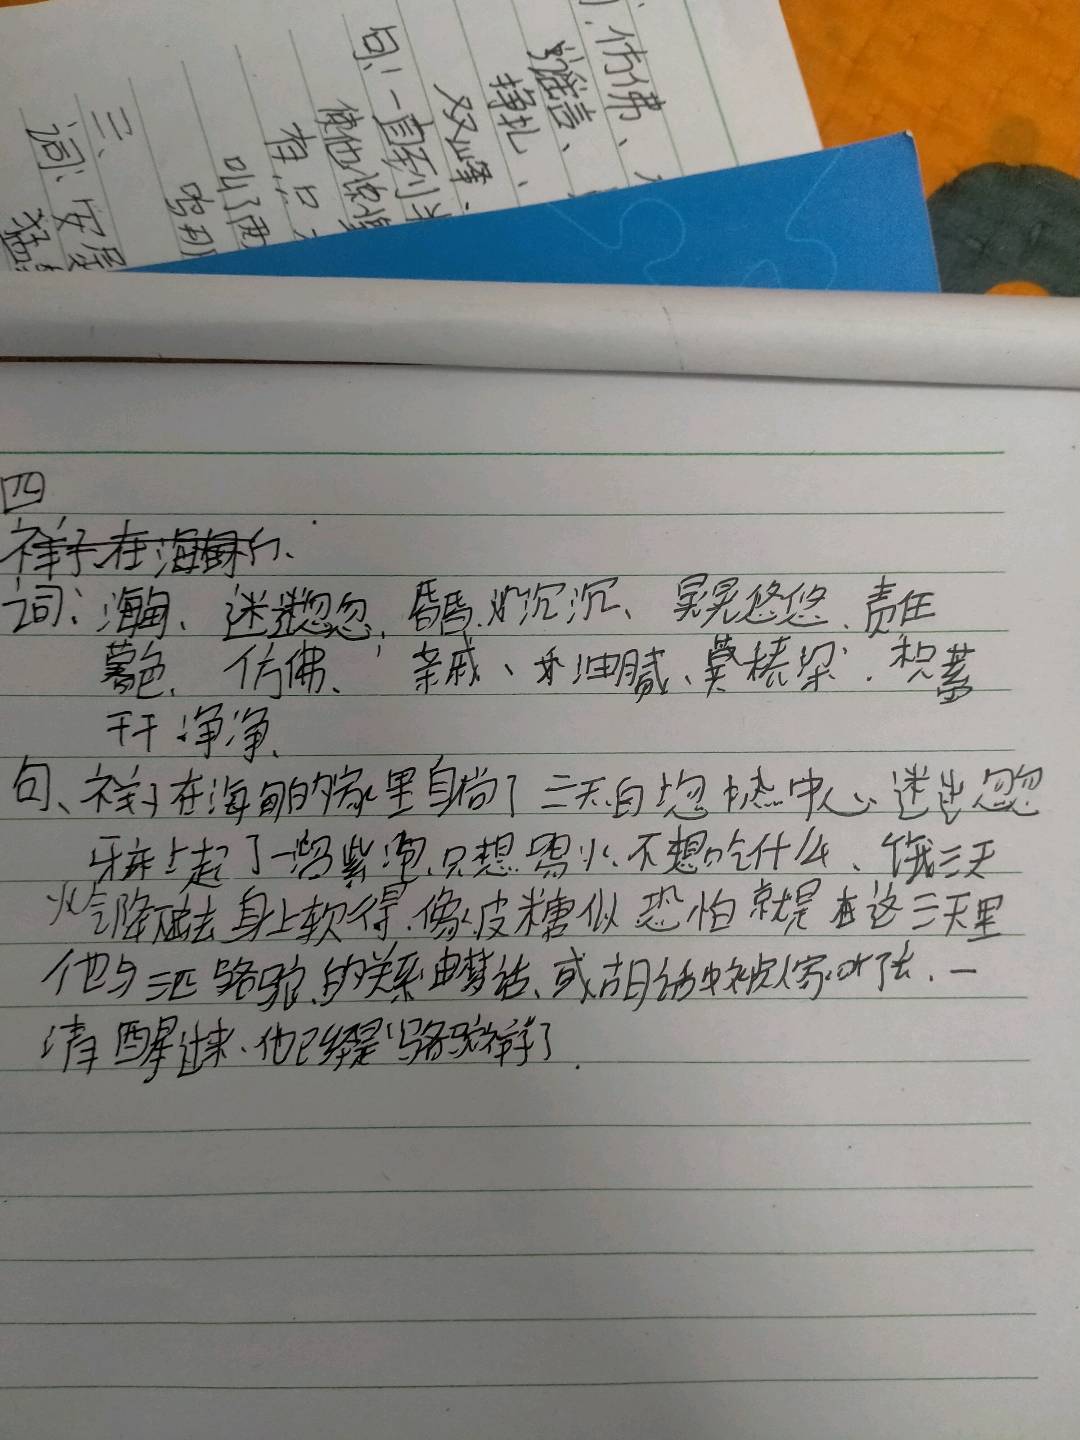 仿佛、
谣言、
挣扎、
双峰
句:一直到半
使他
有只
叫了
三、
词:
四
祥子在海甸的、
词:海甸、迷迷忽忽、昏昏沉沉、晃晃悠悠、责任
暮色、仿佛、亲戚、油腻、积蓄
干干净净、
句、祥子在海甸的家里躺了三天,忽热忽冷、迷迷忽忽
牙床上起了一溜紫泡,只想喝水、不想吃什么、饿三天
火气降下去,身上软得像皮糖似 恐怕就是在这三天里
他与三匹骆驼的关系由梦话、或胡话中被人家听了去、一
清醒过来、他已经是“骆驼祥子了